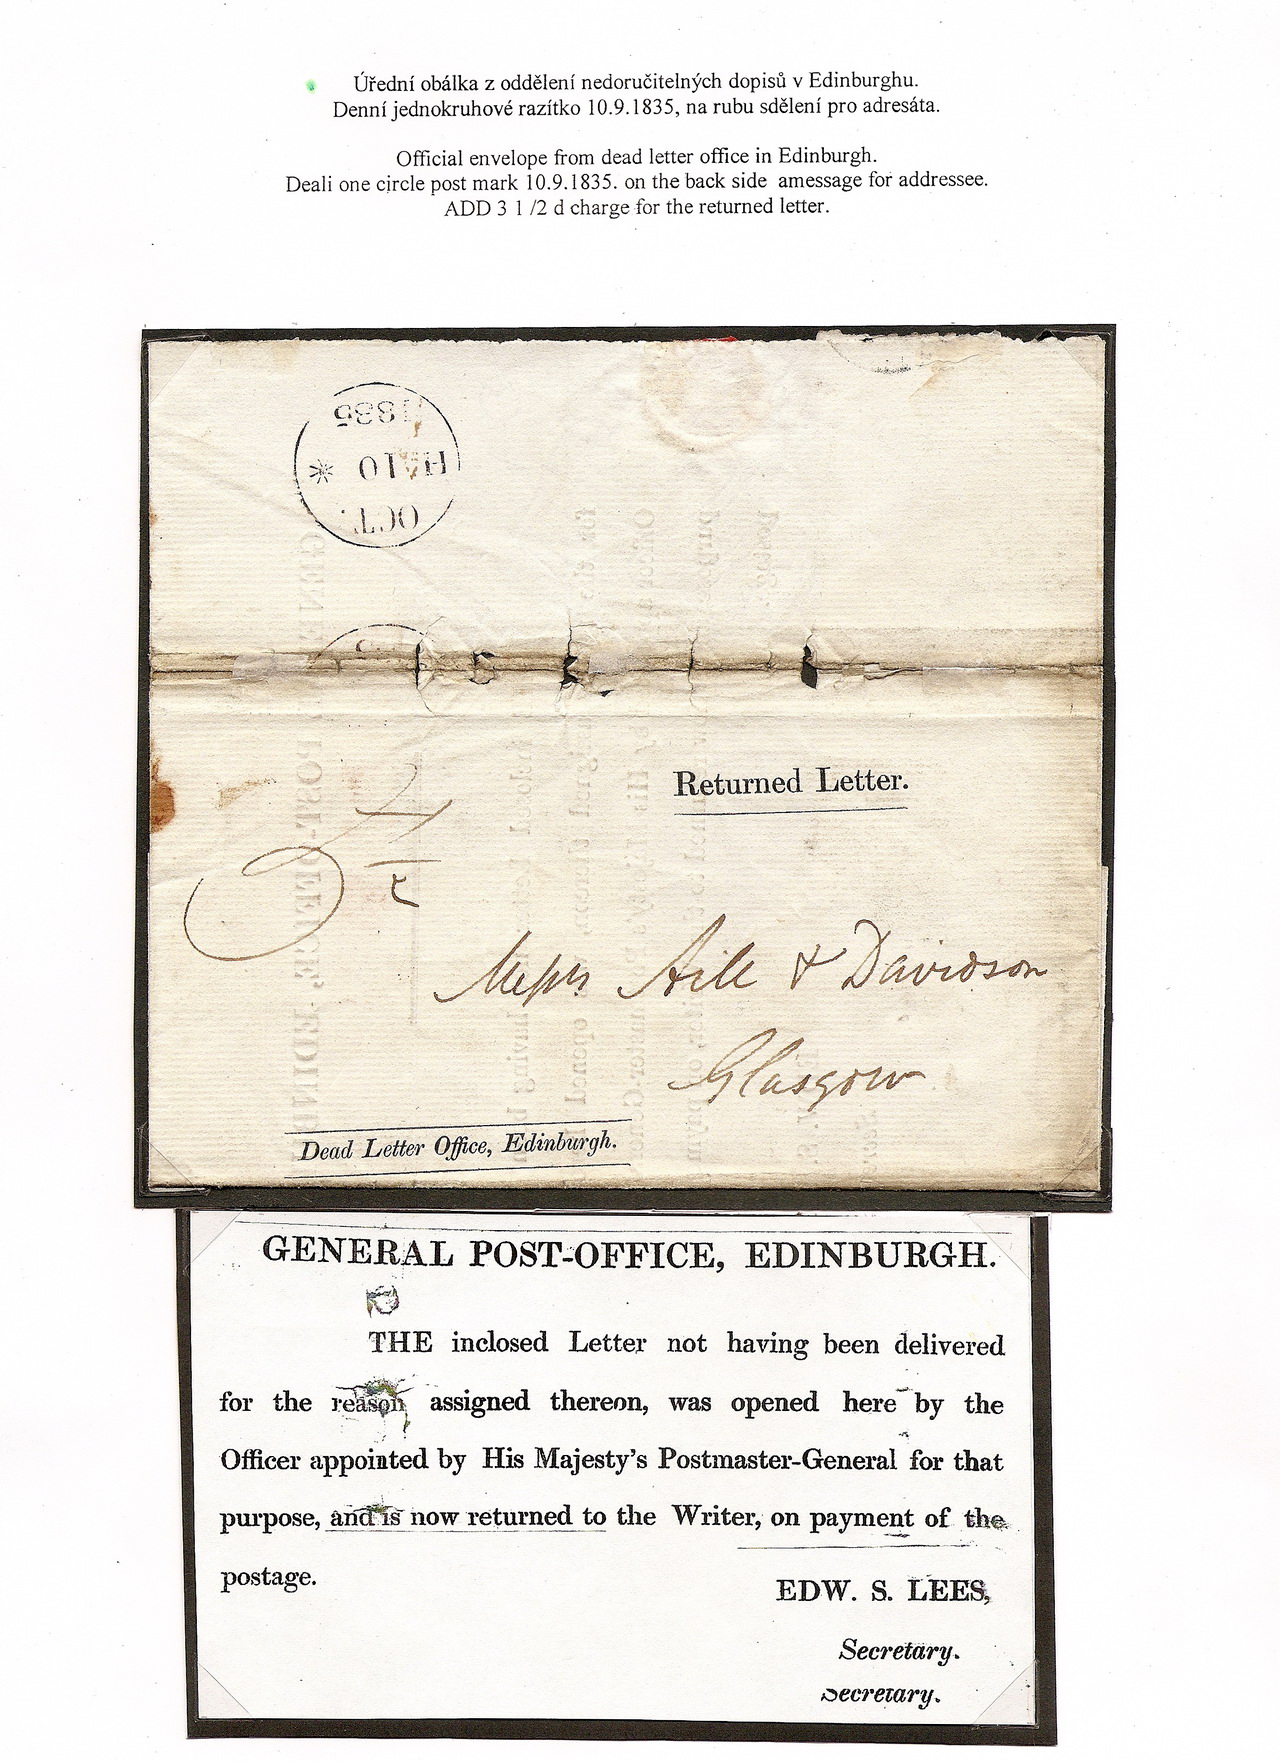 Úřední obálka z oddělení nedoručitelných dopisů v Edinburghu.
Denní jednokruhové razítko 10.9.1835, na rubu sdělení pro adresáta.
Official envelope from dead letter office in Edinburgh.
Deali one circle post mark 10.9.1835. on the back side amessage for addressee.
ADD 3 1 /2 d charge for the returned letter.
OCT.
H 10 *
1835
Returned Letter.
Messrs & Davidson
Glasgow
Dead Letter Office, Edinburgh.
GENERAL POST-OFFICE, EDINBURGH.
THE inclosed Letter not having been delivered
for the reason assigned thereon, was opened here by the
Officer appointed by His Majesty's Postmaster-General for that
purpose, and is now returned to the Writer, on payment of the
postage.
EDW. S. LEES,
Secretary.
Secretary.